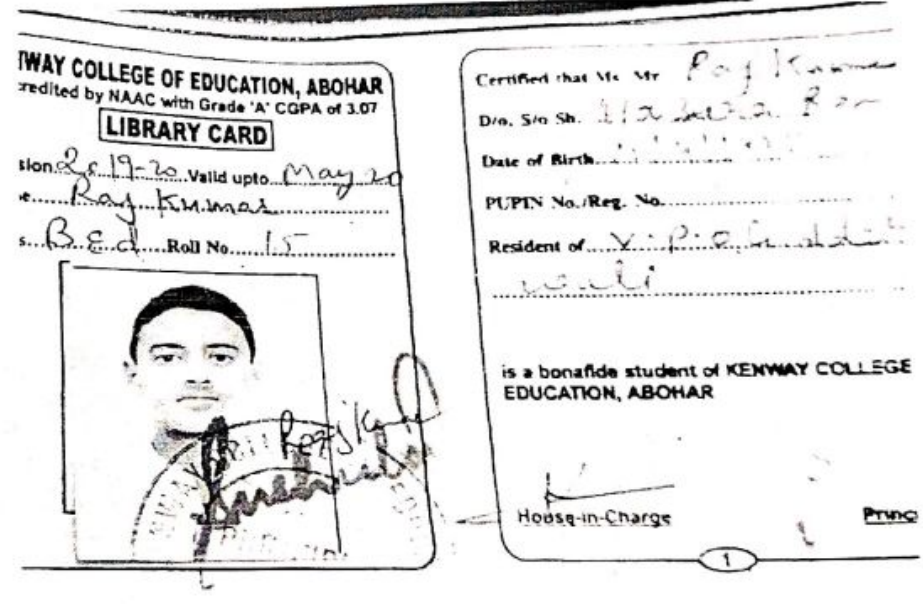 WAY COLLEGE OF EDUCATION, ABOHAR
redited by NAAC with Grade 'A' CGPA of 3.07
LIBRARY CARD
sion 2019-20 Valid upto May 20
e Raj Kumar
s B.Ed Roll No 15
Raj Kumar
Certified that Ms Mr Raj Kumar
D/o, S/o Sh.
Date of Birth
PUPIN No./Reg. No.
Resident of V.P.O.
wali
is a bonafide student of KENWAY COLLEGE
EDUCATION, ABOHAR
House-in-Charge Princ
1